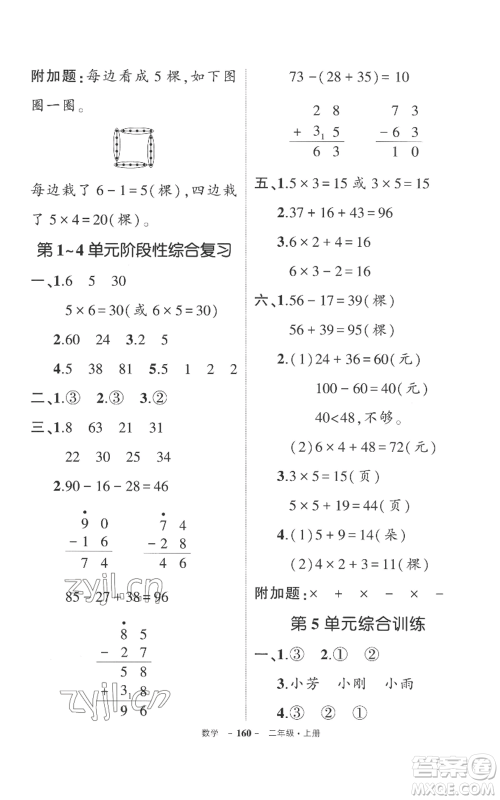 附加题：每边看成 5 棵，如下图
圈一圈。
每边栽了 6－1＝5(棵)，四边栽
了 5×4＝20(棵)。
第 1~4 单元阶段性综合复习
一、1.6 5 30
5×6＝30(或 6×5＝30)
2.60 24 3.2 5
4.5 38 81 5.5 1 2 2
二、1.③ 2.③ 3.②
三、1.8 63 21 31
22 30 25 24
2.90－16－28＝46
9 0
－1 6
7 4
7 4
－2 8
4 6
85－27＋38＝96
8 5
－2 7
5 8
＋3₁8
9 6
73－(28＋35)＝10
2 8
＋3₁5
6 3
7 3
－6 3
1 0
五、1.5×3＝15 或 3×5＝15
2.37＋16＋16＝69
3.6×2＋6＝18
6×3＝18
六、1.56－17＝39(棵)
56＋39＝95(棵)
2.(1)24＋36＝60(元)
100－60＝40(元)
40<48，不够。
(2)6×4＋48＝72(元)
3.3×5＝15(页)
5×5＝25(页)
4.(1)5＋9＝14(朵)
(2)4×2＋10＝18(棵)
附加题：× ＋ × － ×
第 5 单元综合训练
一、1.③ 2.① ②
3.小芳 小刚 小雨
4.② ① ③ ②
数学 －160－ 二年级·上册
zyjl.cn
zyjl.cn
答案圈
MXQE.COM